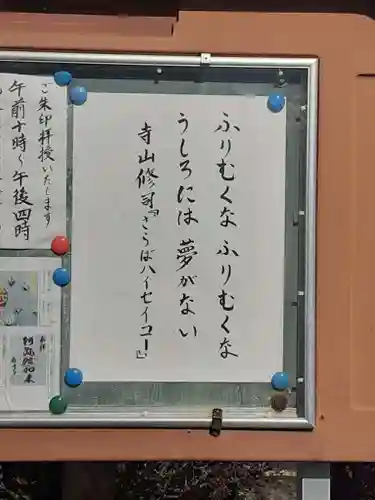 ふりむくな ふりむくな
うしろには 夢がない
寺山修司『さらばハイセイコー』
ご朱印拝授いたします
午前十時〜午後四時